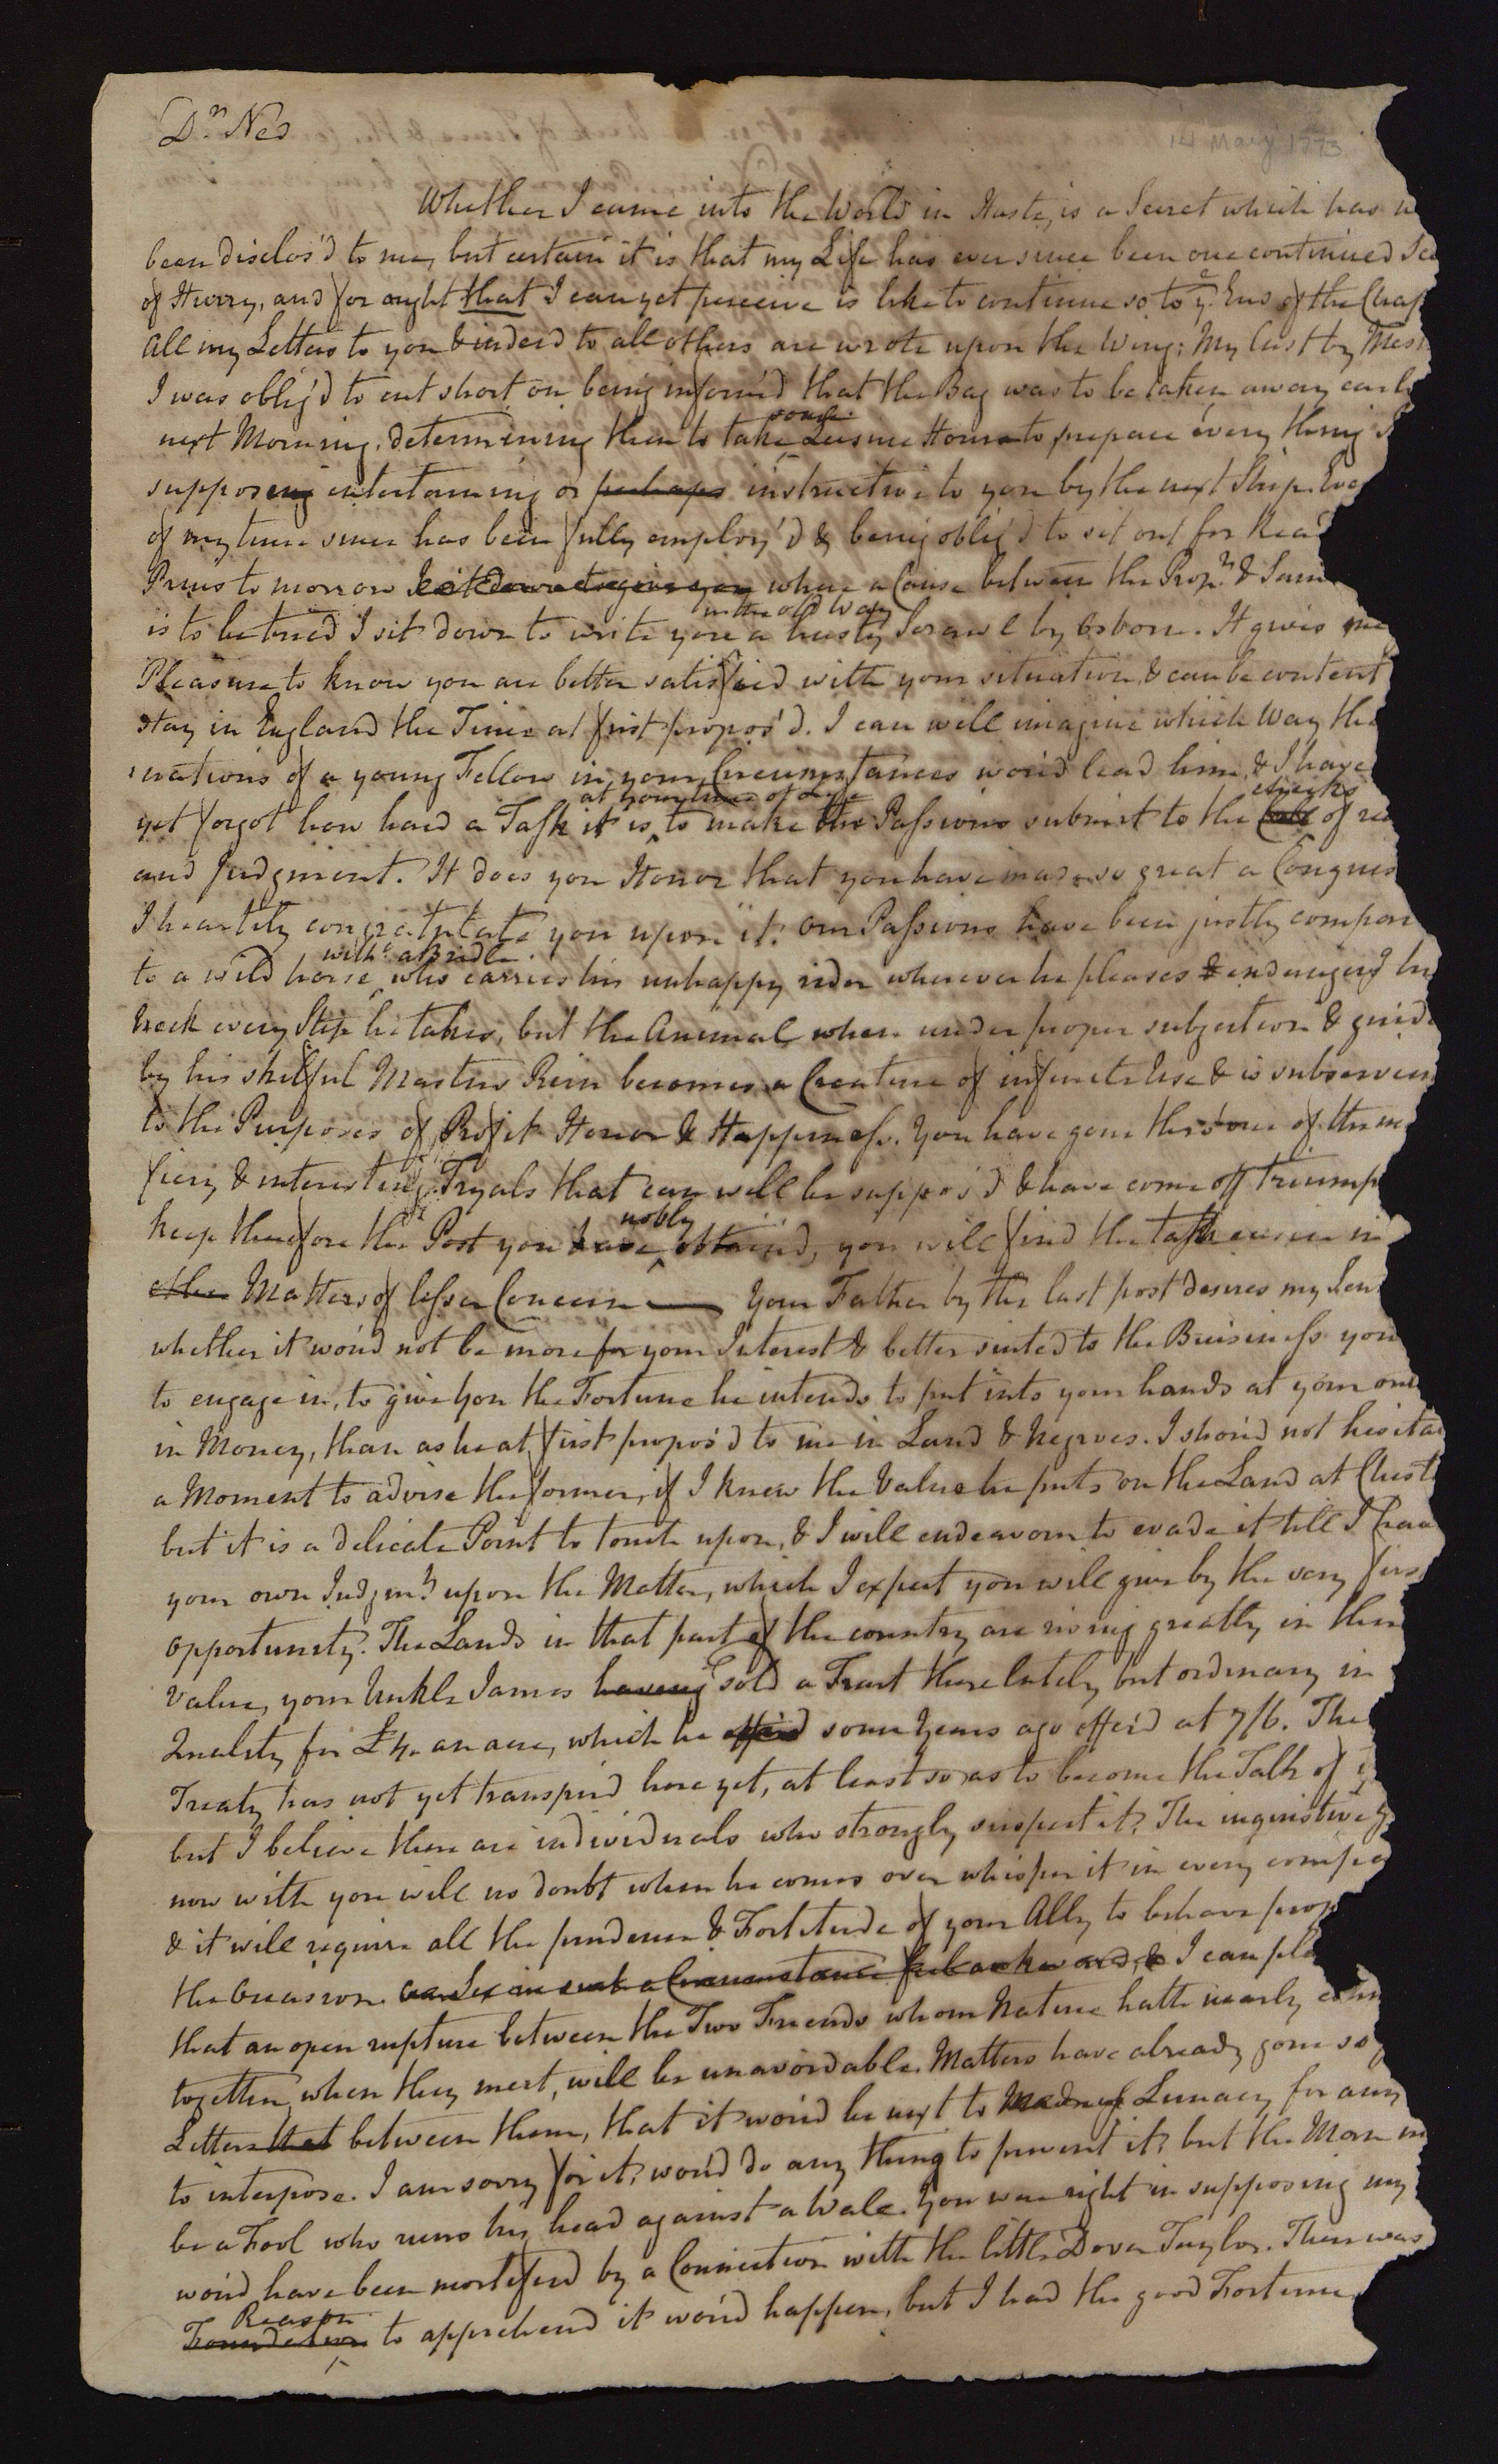 Dr. Ned
14 May 1773
Whether I came into the World in Haste, is a Secret which has
been disclos'd to me, but certain it is that my Life has ever since been one continued
of Hurry, and for aught that I can yet perceive is like to continue so to ye. End of the Chap
All my Letters to you & indeed to all others are wrote upon the Wing: My last by
I was oblig'd to cut short on being inform'd that the Bag was to be taken away
next Morning, determining then to take some Leisure Hours to prepare every thing
supposing entertaining or perhaps instructive to you by the next Ship.
of my time since has been fully employ'd & being oblig'd to set out for
to morrow where a Cause between the Propr. &
in the old Way
is to be tried I sit down to write you a hasty Scrawl by Osborn. It gives me
Pleasure to know you are better satisfied with your situation & can be content
stay in England the Time at first propos'd. I can well imagine which Way the
of a young Fellow in your Circumstances wou'd lead him, & I have
at your time of age
checks
yet forgot how hard a Task it is to make the Passions submit to the Call of
and Judgment. It does you Honor that you have made so great a
I heartily congratulate you upon it: Our Passions have been justly compar
witht. a Bridle
to a wild horse who carries his unhappy rider wherever he pleases & endangers
neck every Step he takes, but the Animal when under proper subjection & guid
by his skilful Masters Rein becomes a Creature of infinite Use & is subservien
to the Purposes of Profit Honor & Happiness. You have gone thro' one of the
fiery & interesting Tryals that can well be suppos'd & have come off triump
nobly
keep therefore the Post you have obtain'd, you will find the task easier in
other Matters of lesser Concern — Your Father by the last post desires my
whether it wou'd not be more for your Interest & better suited to the Buisiness you
to engage in, to give you the Fortune he intends to put into your hands at your own
in Money, than as he at first propos'd to me in Land & Negroes. I shou'd not hesitat
a Moment to advise the former, if I knew the Value he puts on the Land at
but it is a delicate Point to touch upon, & I will endeavour to evade it till I
your own Judgmt. upon the Matter, which I expect you will give by the very firs
opportunity. The Lands in that part of the country are rising greatly in their
Value, your Unkle James having sold a Tract there lately but ordinary in
Quality for an acre, which he offer'd some Years ago offer'd at 7/6. The
Treaty has not yet transpir'd here yet, at least so as to become the Talk of
but I believe there are individuals who strongly suspect it. The inquisitive
now with you will no doubt when he comes over whisper it in every compa
& it will require all the prudence & Fortitude of your Ally to behave prop
the Occasion. in such a Circumstance feel awkward, & I can
that an open rupture between the Two Friends whom Nature hath nearly
together, when they meet, will be unavoidable. Matters have already gone so
Letters that between them, that it wou'd be next to Madness Lunacy for any
to interpose. I am sorry for it, wou'd do any thing to prevent it, but the Man
be a Fool who runs his head against a Wall. You was right in supposing my
wou'd have been mortified by a Connection with the little Dover Taylor. There was
Reason
Foundation to apprehend it wou'd happen, but I had the good Fortune